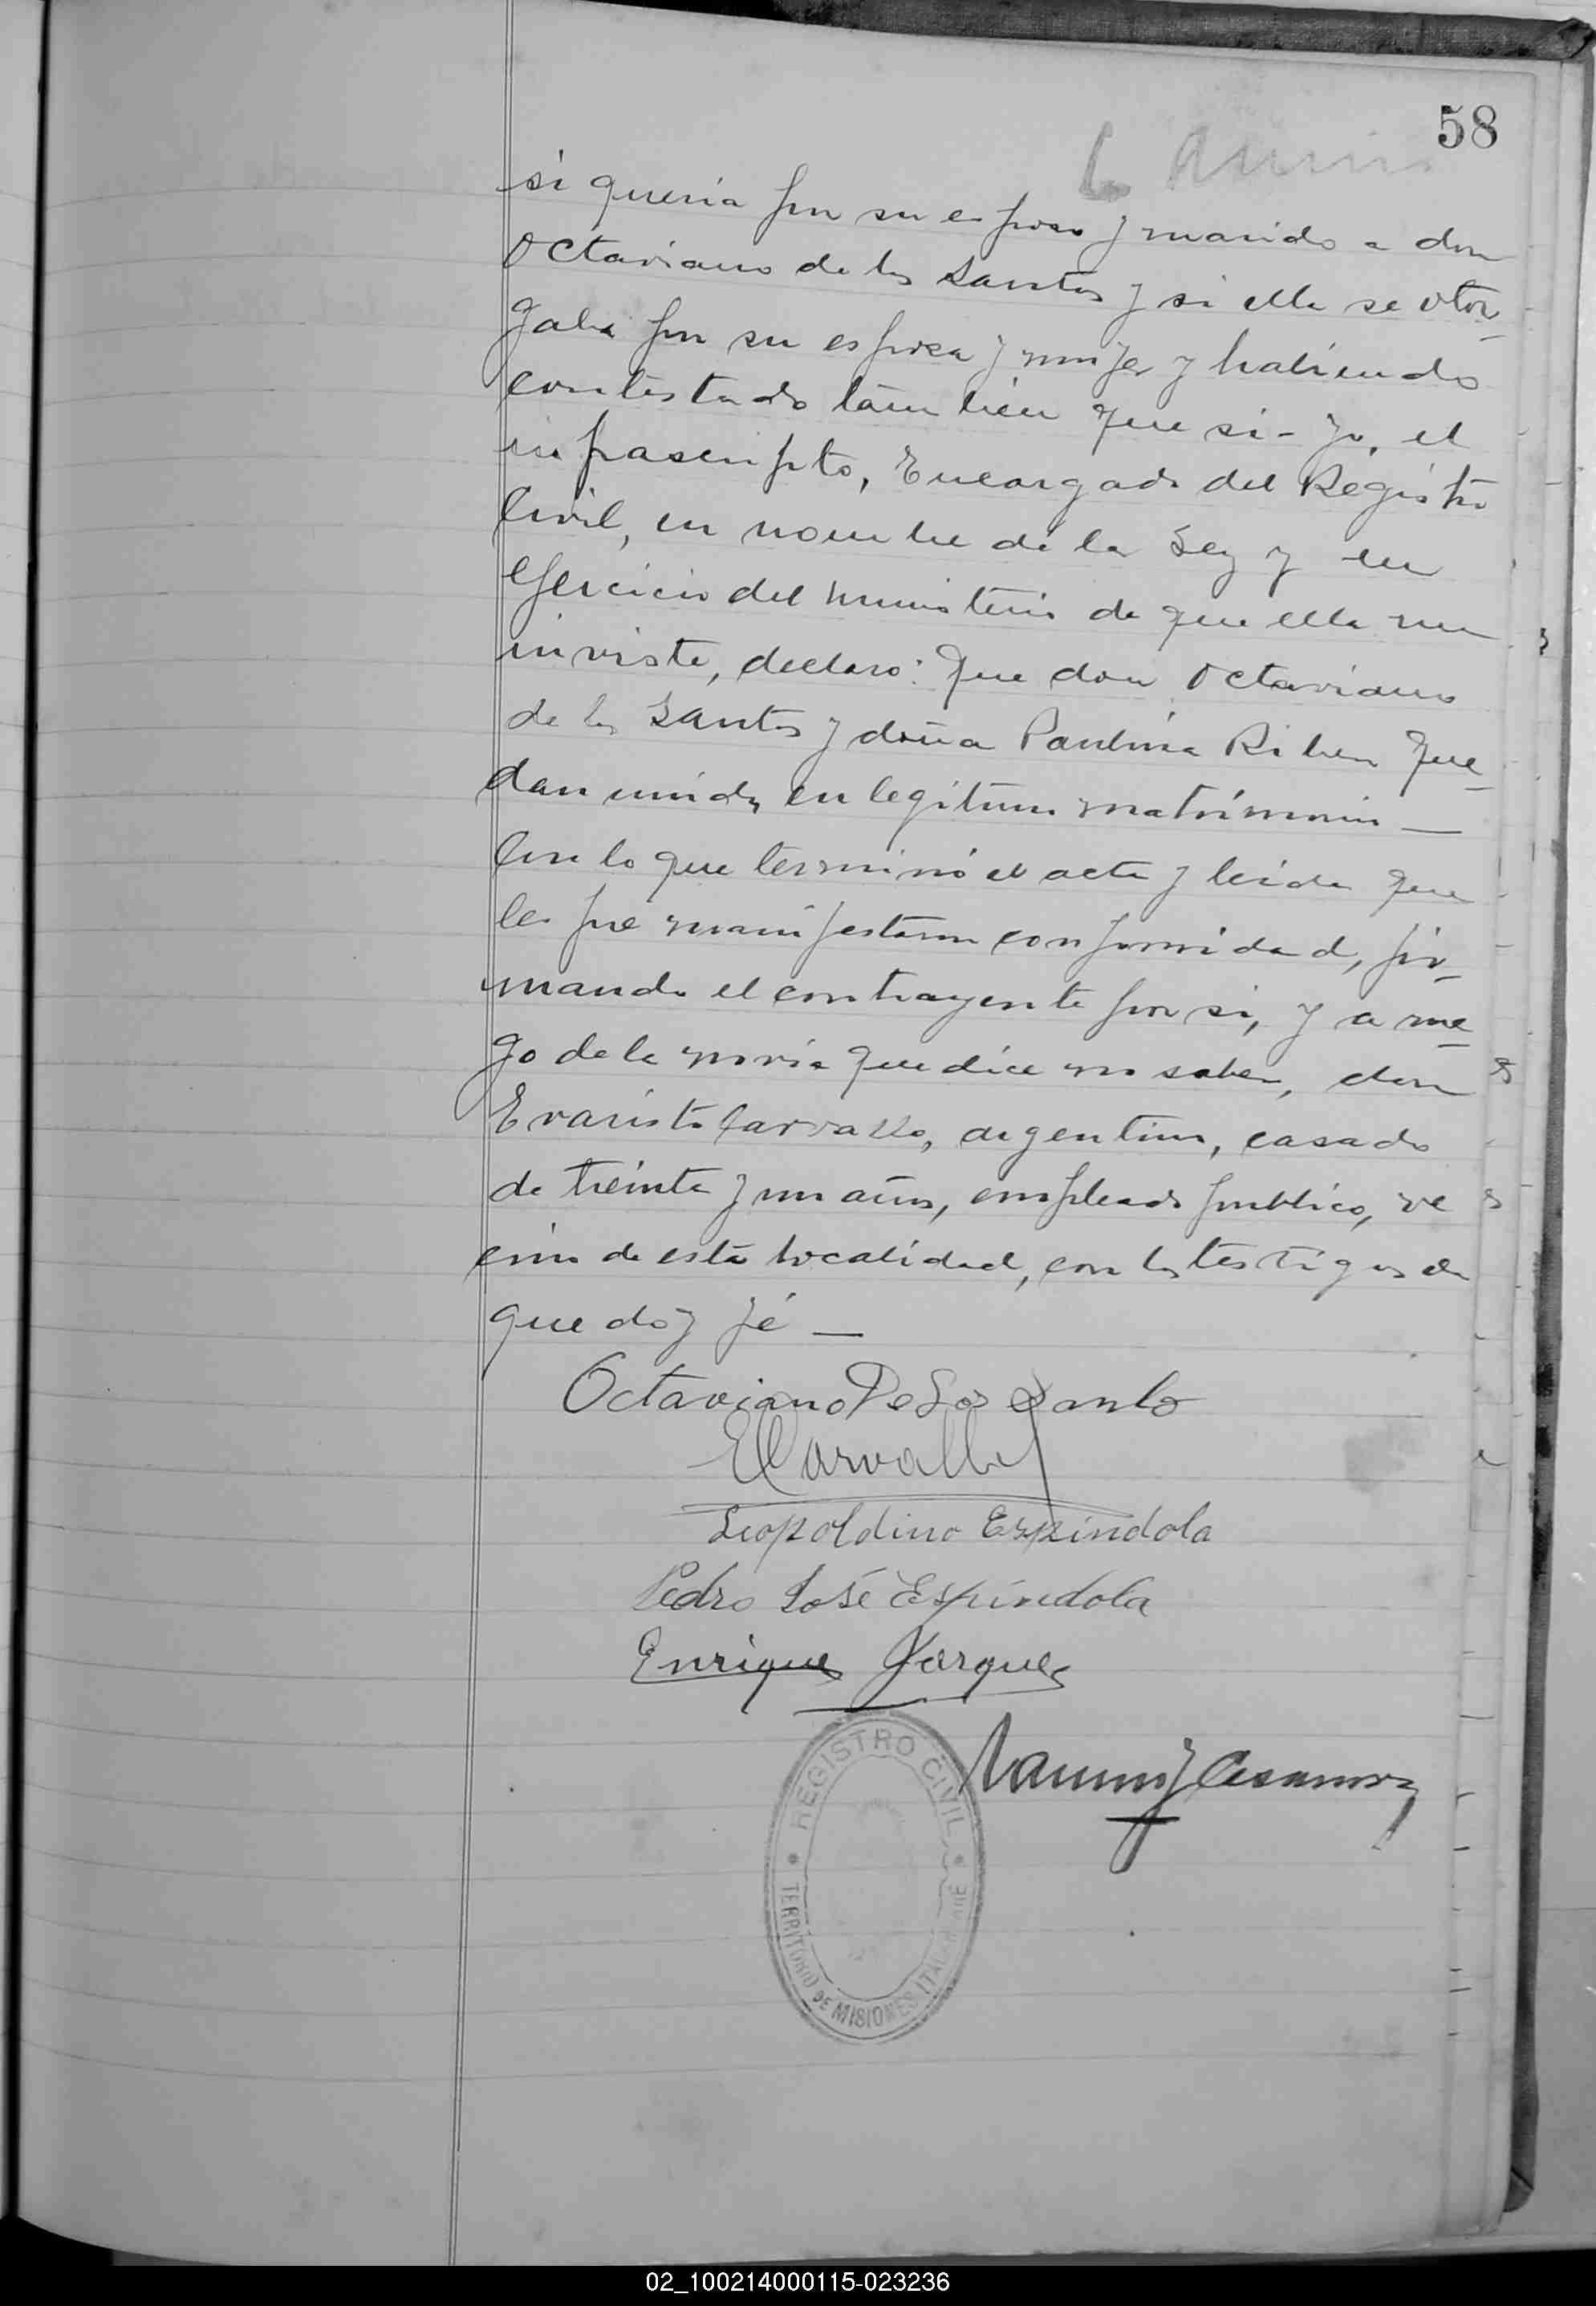 58
si queria por su esposo y marido a don
Octaviano de los Santos y si ella se otor
gaba por su esposa y mujer y habiendo
contestado tambien que si - yo, el
infrascripto, Encargado del Registro
Civil, en nombre de la Ley y en
ejercicio del ministerio de que ella me
inviste, declaro: que don Octaviano
de los Santos y doña Paulina Que_
dan unidos en legitimo matrimonio —
Con lo que terminó el acta y leida que
les fue manifestaron conformidad, fir_
mando el contrayente por si, y a rue_
go de la novia que dice no saber, don
Evaristo Carvallo, argentino, casado
de treinta y un años, empleado publico, ve
cino de esta localidad, con los testigos de
que doy fé —
Octaviano De Los Santo
ECarvallo
Leopoldino Espindola
Pedro José Espíndola
Enrique
REGISTRO CIVIL
TERRITORIO DE MISIONES
02_100214000115-023236